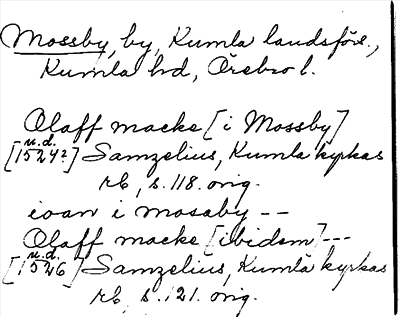 Mossby, by, Kumla landsförs.,
Kumla hd, Örebro l.
Olaff macke [i Mossby]
[u.d. 1524?] Samzelius, Kumla kyrkas
rb, s. 118. orig.
ioan i mosaby --
Olaff macke [ibidem] ---
[u.d. 1526] Samzelius, Kumla kyrkas
rb, s. 121. orig.